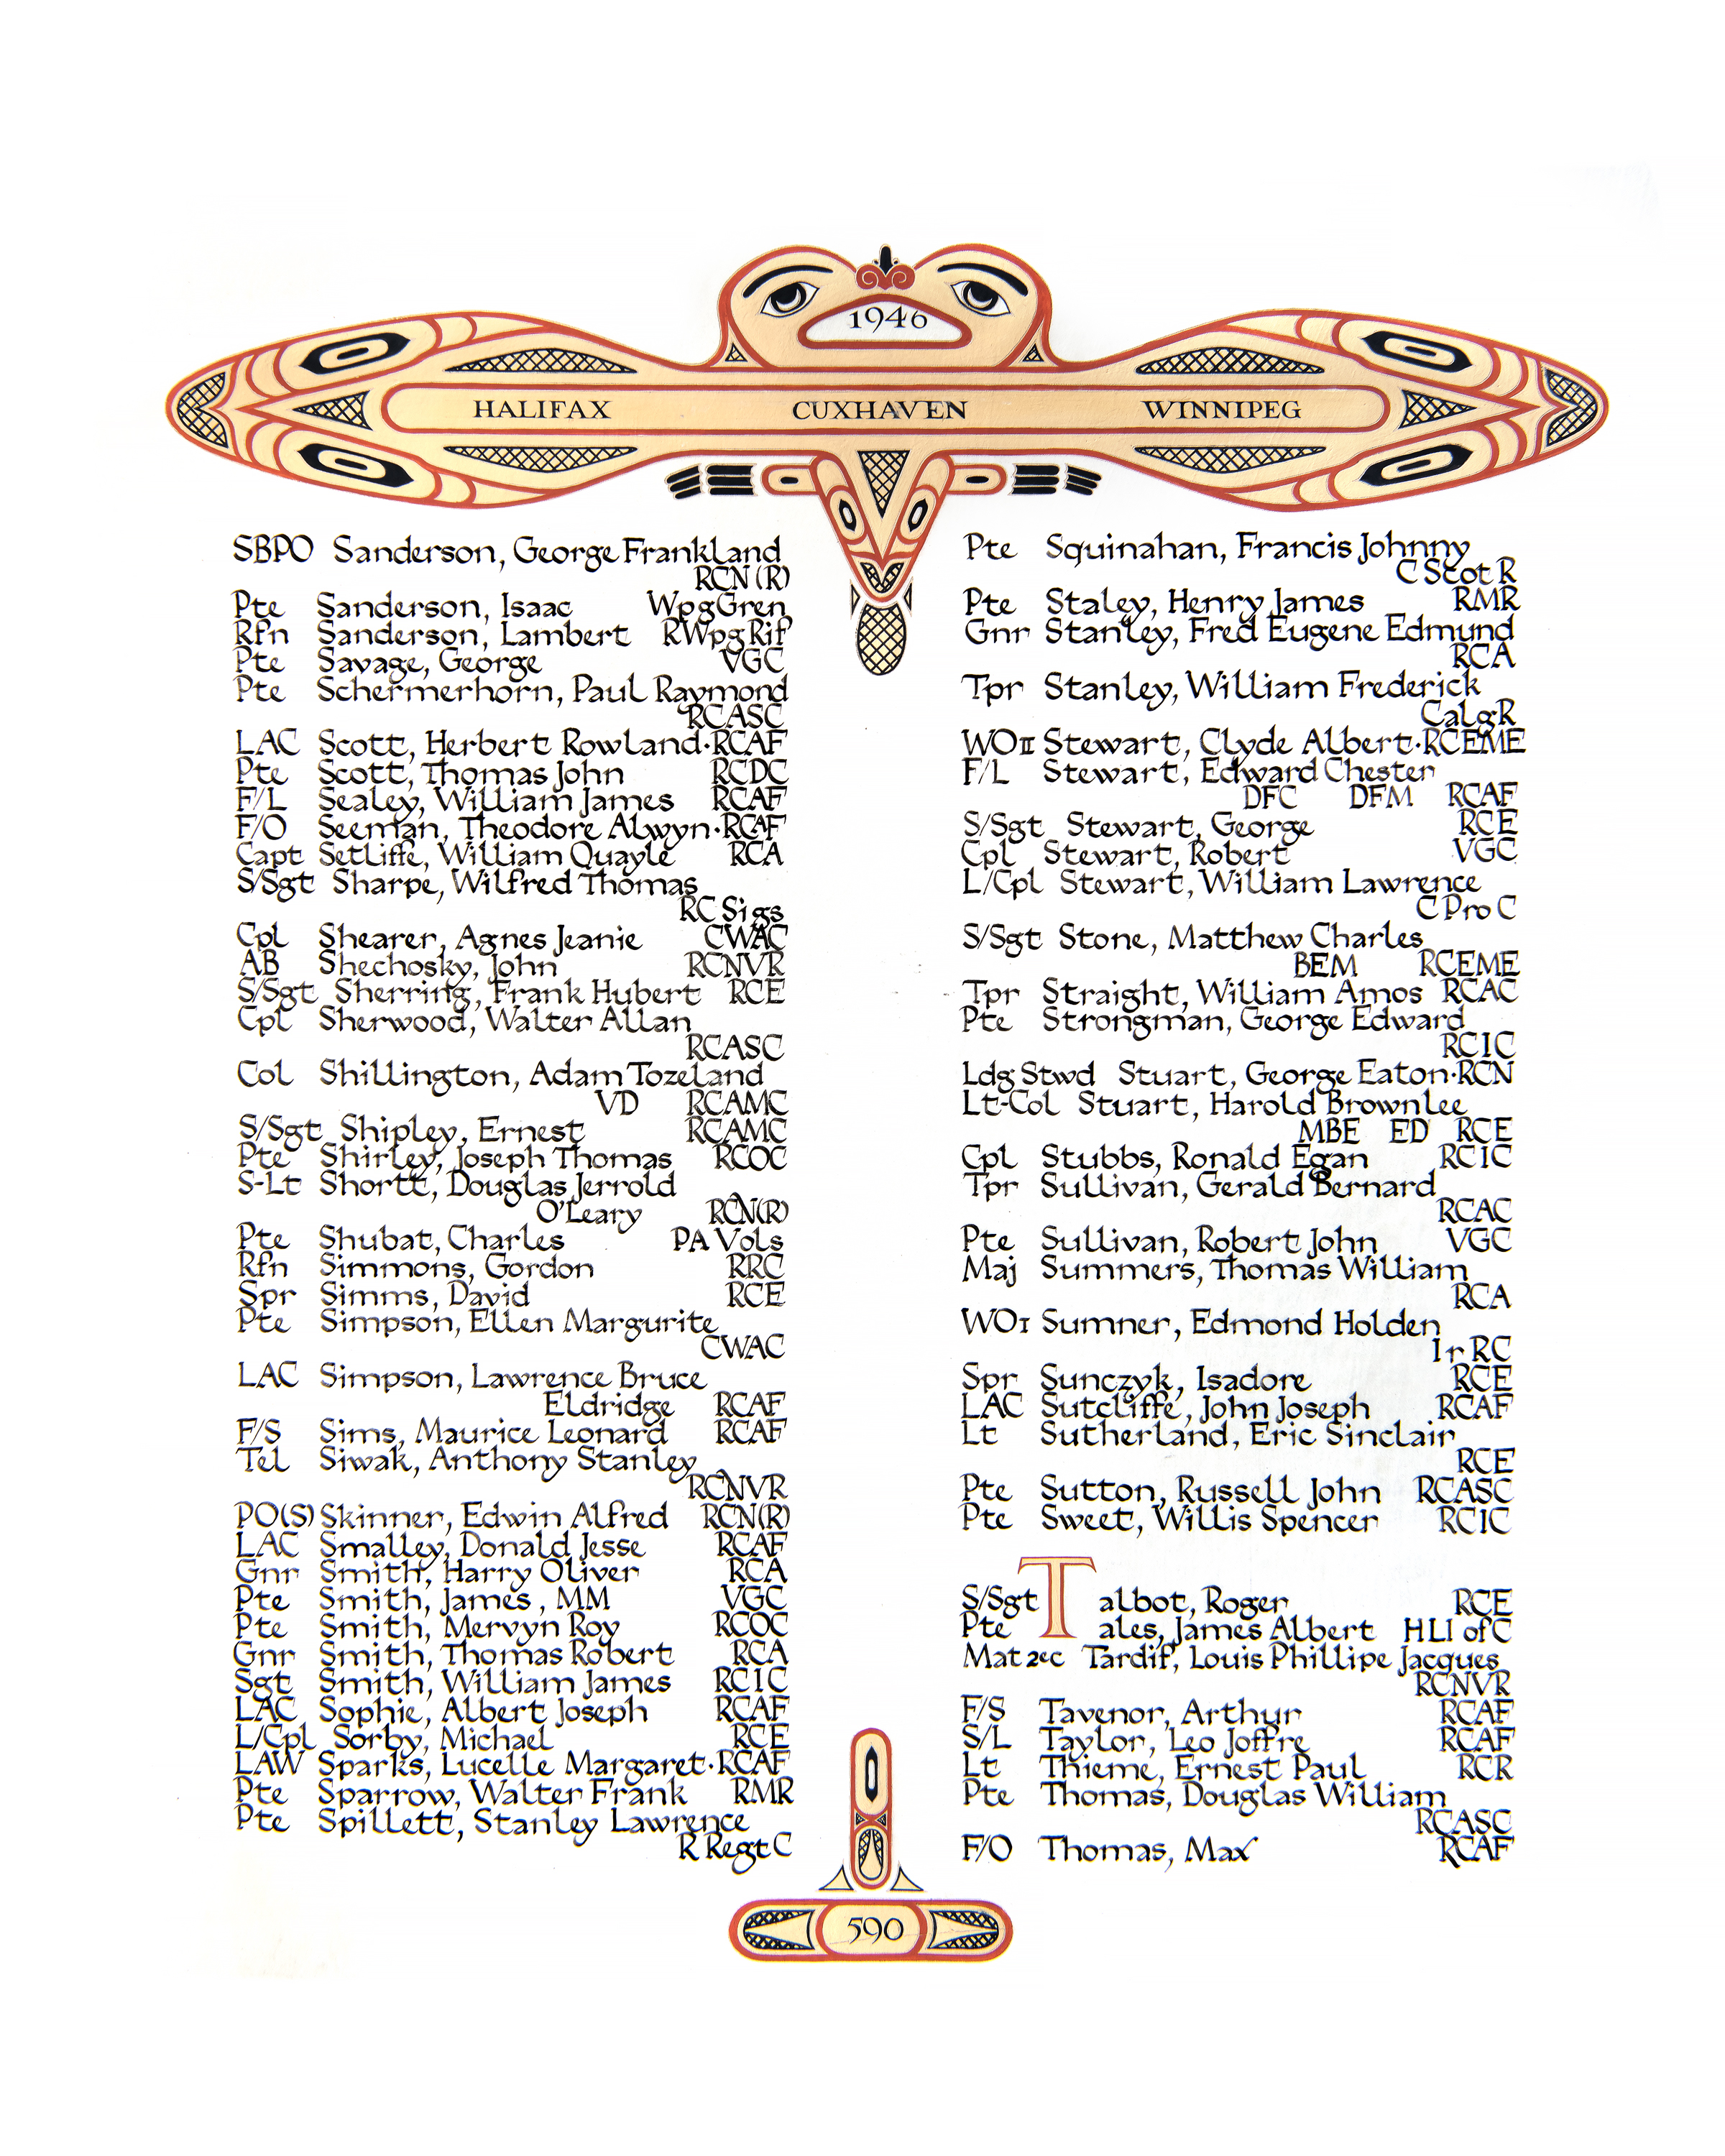 1946
HALIFAX CUXHAVEN WINNIPEG
SBPO Sanderson, George Frankland
RCN (R)
Pte Sanderson, Isaac WpgGren
Rfn Sanderson, Lambert RWpgRif
Pte Savage, George VGC
Pte Schermerhorn, Paul Raymond
RCASC
LAC Scott, Herbert Rowland·RCAF
Pte Scott, Thomas John RCDC
F/L Sealey, William James RCAF
F/O Seeman, Theodore Alwyn·RCAF
Capt Setliffe, William Quayle RCA
S/Sgt Sharpe, Wilfred Thomas
RC Sigs
Cpl Shearer, Agnes Jeanie CWAC
AB Shechosky, John RCNVR
S/Sgt Sherring, Frank Hubert RCE
Cpl Sherwood, Walter Allan
RCASC
Col Shillington, Adam Tozeland
VD RCAMC
S/Sgt Shipley, Ernest RCAMC
Pte Shirley, Joseph Thomas RCOC
S-Lt Shortt, Douglas Jerrold
O'Leary RCN(R)
Pte Shubat, Charles PA Vols
Rfn Simmons, Gordon RRC
Spr Simms, David RCE
Pte Simpson, Ellen Margurite
CWAC
LAC Simpson, Lawrence Bruce
Eldridge RCAF
F/S Sims, Maurice Leonard RCAF
Tel Siwak, Anthony Stanley
RCNVR
PO(S) Skinner, Edwin Alfred RCN(R)
LAC Smalley, Donald Jesse RCAF
Gnr Smith, Harry Oliver RCA
Pte Smith, James, MM VGC
Pte Smith, Mervyn Roy RCOC
Gnr Smith, Thomas Robert RCA
Sgt Smith, William James RCIC
LAC Sophie, Albert Joseph RCAF
L/Cpl Sorby, Michael RCE
LAW Sparks, Lucelle Margaret·RCAF
Pte Sparrow, Walter Frank RMR
Pte Spillett, Stanley Lawrence
R Regt C
Pte Squinahan, Francis Johnny
C Scot R
Pte Staley, Henry James RMR
Gnr Stanley, Fred Eugene Edmund
RCA
Tpr Stanley, William Frederick
CalgR
WOII Stewart, Clyde Albert·RCEME
F/L Stewart, Edward Chester
DFC DFM RCAF
S/Sgt Stewart, George RCE
Cpl Stewart, Robert VGC
L/Cpl Stewart, William Lawrence
C Pro C
S/Sgt Stone, Matthew Charles
BEM RCEME
Tpr Straight, William Amos RCAC
Pte Strongman, George Edward
RCIC
Ldg Stwd Stuart, George Eaton·RCN
Lt-Col Stuart, Harold Brownlee
MBE ED RCE
Cpl Stubbs, Ronald Egan RCIC
Tpr Sullivan, Gerald Bernard
RCAC
Pte Sullivan, Robert John VGC
Maj Summers, Thomas William
RCA
WOI Sumner, Edmond Holden
Ir RC
Spr Sunczyk, Isadore RCE
LAC Sutcliffe, John Joseph RCAF
Lt Sutherland, Eric Sinclair
RCE
Pte Sutton, Russell John RCASC
Pte Sweet, Willis Spencer RCIC
S/Sgt Talbot, Roger RCE
Pte ales, James Albert HLI of C
Mat 2ec Tardif, Louis Phillipe Jacques
RCNVR
F/S Tavenor, Arthur RCAF
S/L Taylor, Leo Joffre RCAF
Lt Thieme, Ernest Paul RCR
Pte Thomas, Douglas William
RCASC
F/O Thomas, Max RCAF
590